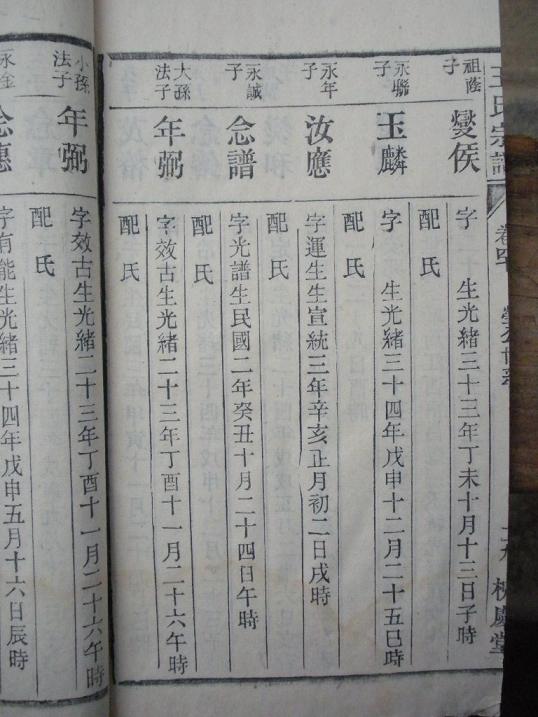 王氏宗譜
槐慶堂
祖蔭子
燮侯
字 生光緒三十三年丁未十月十三日子時
配 氏
永聯子
玉麟
字 生光緒三十四年戊申十二月二十五巳時
配 氏
永年子
汝應
字運生生宣統三年辛亥正月初二日戌時
配 氏
永誠子
念譜
字光譜生民國二年癸丑十月二十四日午時
配 氏
大孫法子
年弼
字效古生光緒二十三年丁酉十一月二十六午時
配 氏
小孫法子
年弼
字效古生光緒二十三年丁酉十一月二十六午時
配 氏
永金
念
字有能生光緒三十四年戊申五月十六日辰時